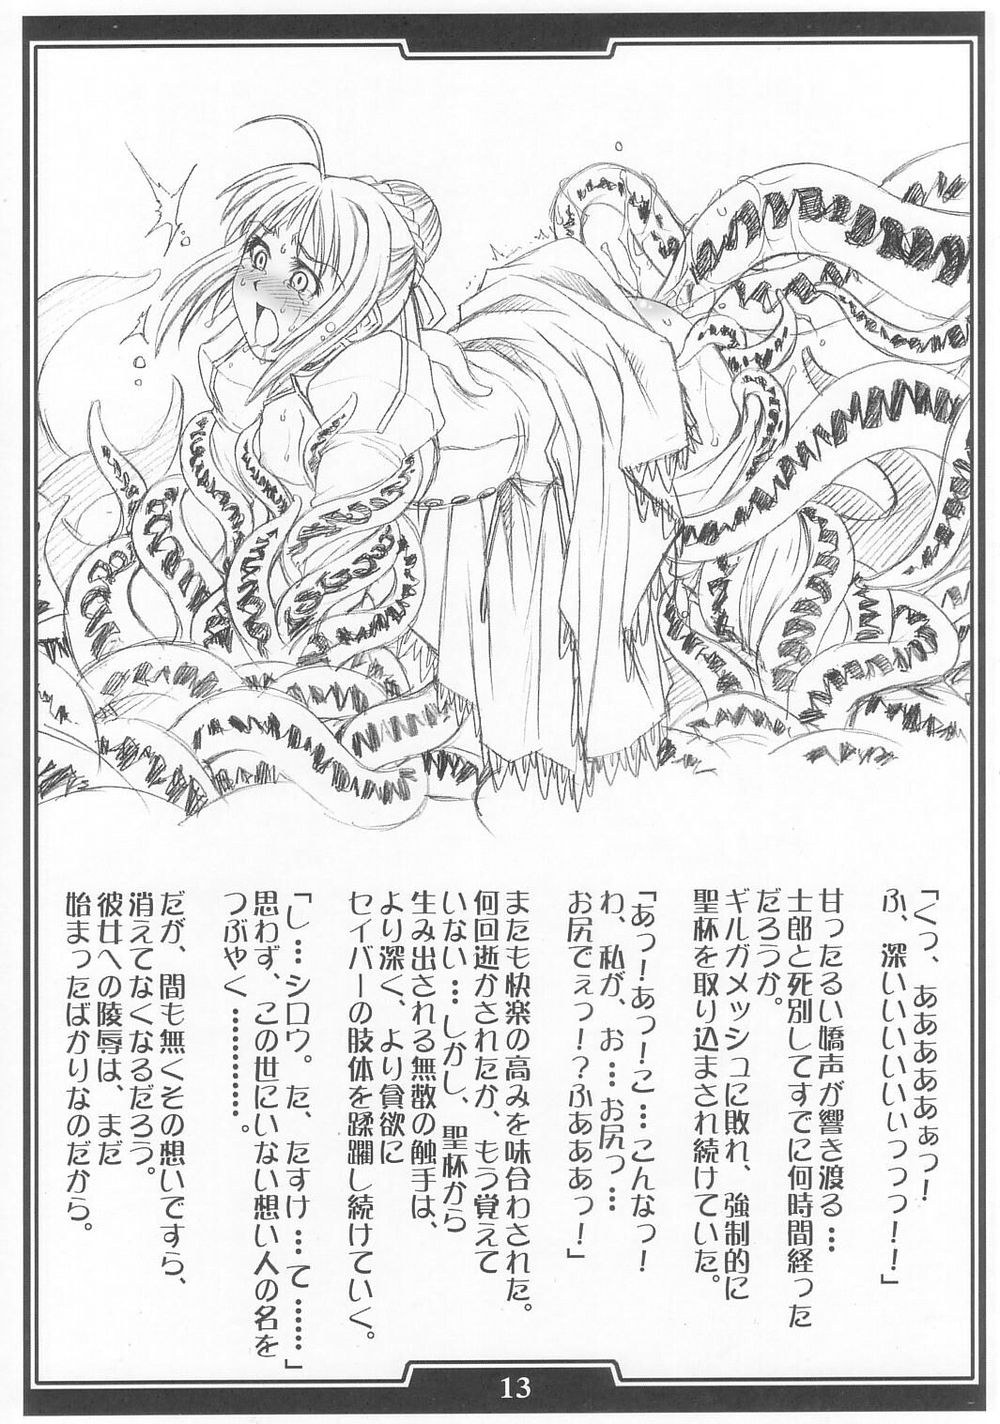 「くっ、ああああぁっ！
ふ、深いいいいいぃっっっ！！」
甘ったるい嬌声が響き渡る…
士郎と死別してすでに何時間経った
だろうか。
ギルガメッシュに敗れ、強制的に
聖杯を取り込まされ続けていた。
「あっ！あっ！こ…こんなっ！
わ、私が、お…お尻っ…
お尻でぇっ！？ふあああっ！」
またも快楽の高みを味合わされた。
何回逝かされたか、もう覚えて
いない…しかし、聖杯から
生み出される無数の触手は、
より深く、より貪欲に
セイバーの肢体を蹂躙し続けていく。
「し…シロウ。た、たすけ…て……」
思わず、この世にいない想い人の名を
つぶやく…………。
だが、間も無くその想いですら、
消えてなくなるだろう。
彼女への陵辱は、まだ
始まったばかりなのだから。
13